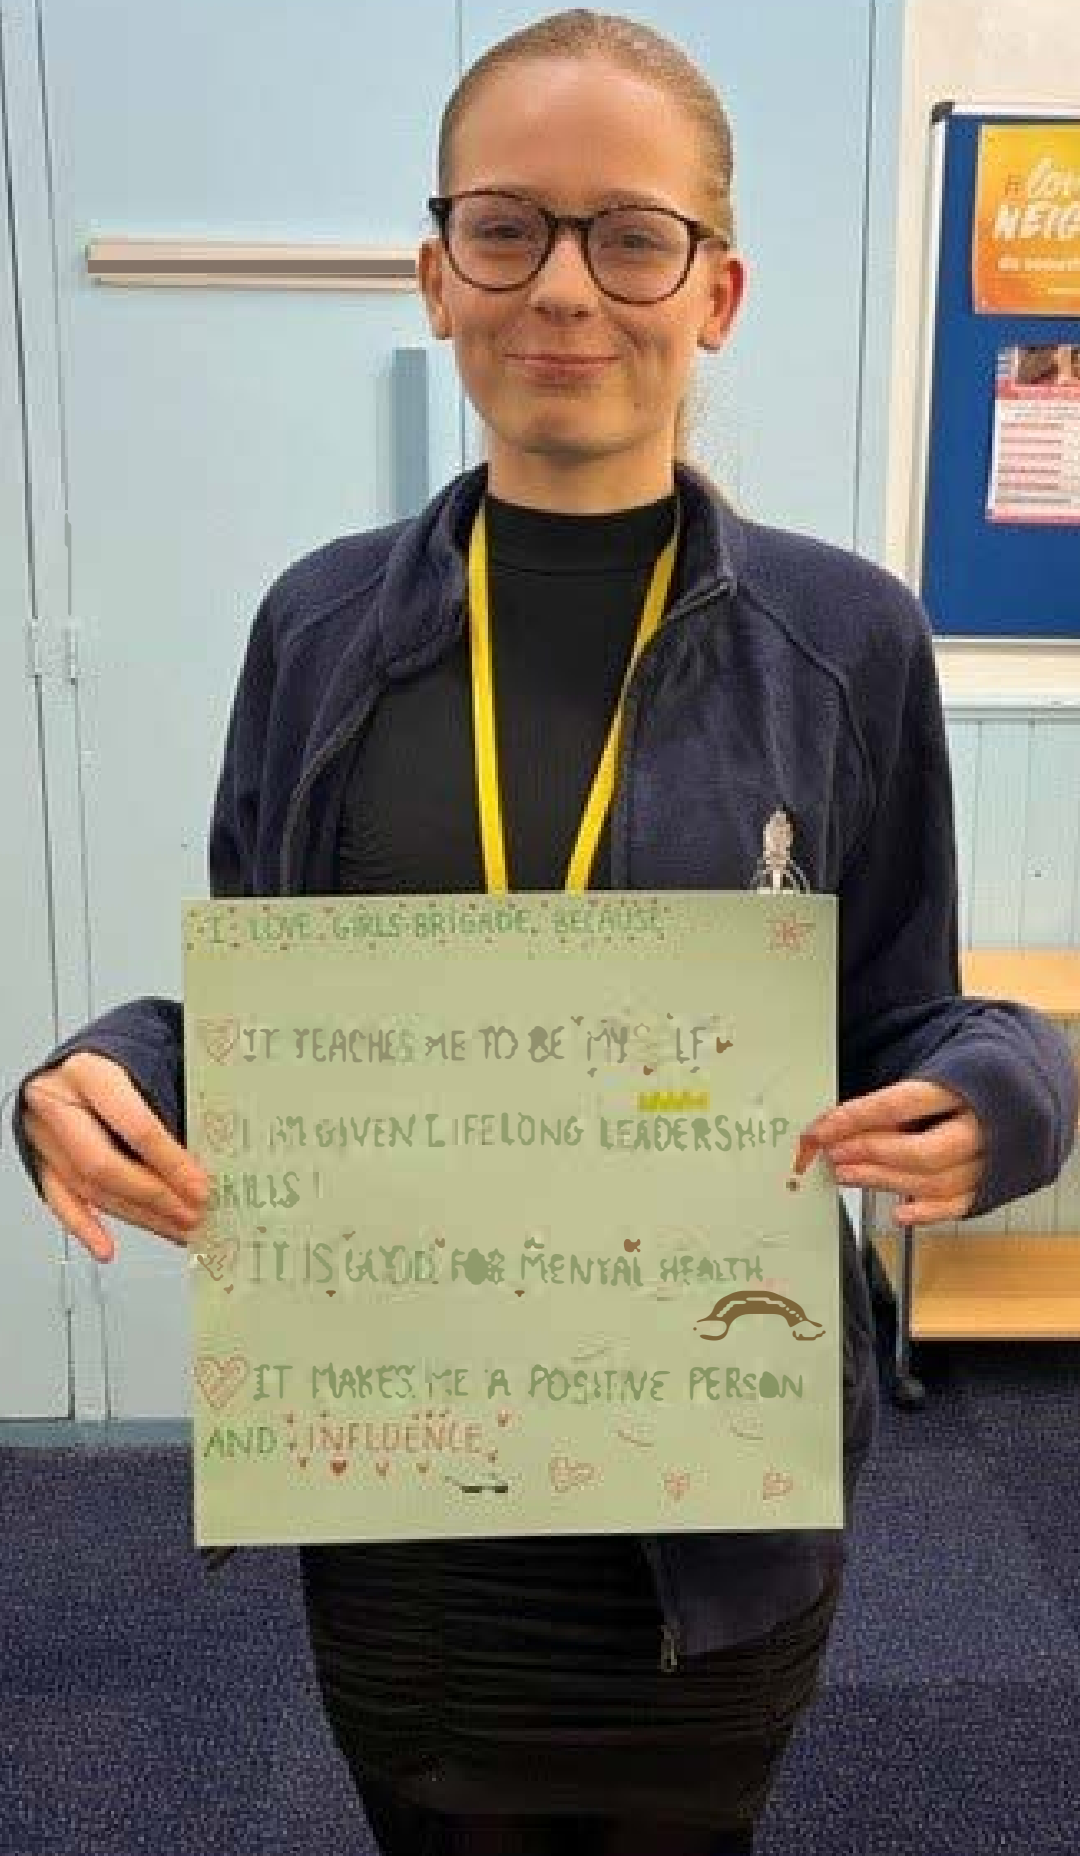 I LOVE GIRLS BRIGADE, BECAUSE
IT TEACHES ME TO BE MY LF
I AM GIVEN LIFELONG LEADERSHIP
SKILLS!
IT IS GOOD FOR MENTAL HEALTH
IT MAKES ME A POSITIVE PERSON
AND INFLUENCE